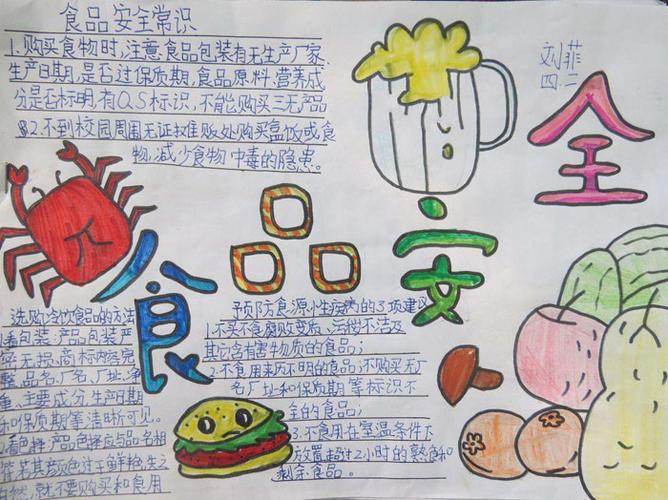 食品安全常识
1.购买食物时,注意食品包装有无生产厂家、
生产日期,是否过保质期,食品原料、营养成
分是否标明,有QS标识,不能购买三无产品
2.不到校园周围无证摊贩处购买盒饭或食
物,减少食物中毒的隐患。
刘菲
四二
食品安全
选购冷饮食品的方法
1.看包装,产品包装严
密无损,商标内容完
整,品名、厂名、厂址、净
重、主要成分、生产日期
和保质期等清晰可见。
2.看色泽,产品色泽应与品名相
符,若其颜色过于鲜艳,失之
自然,就不要购买和食用
预防食源性疾病的3项建议
1.不买不食腐败变质、污秽不洁及
其它含有害物质的食品;
2.不食用来历不明的食品;不购买无厂
名厂址和保质期等标识不
全的食品;
3.不食用在室温条件下
放置超过2小时的熟食和
剩余食品。